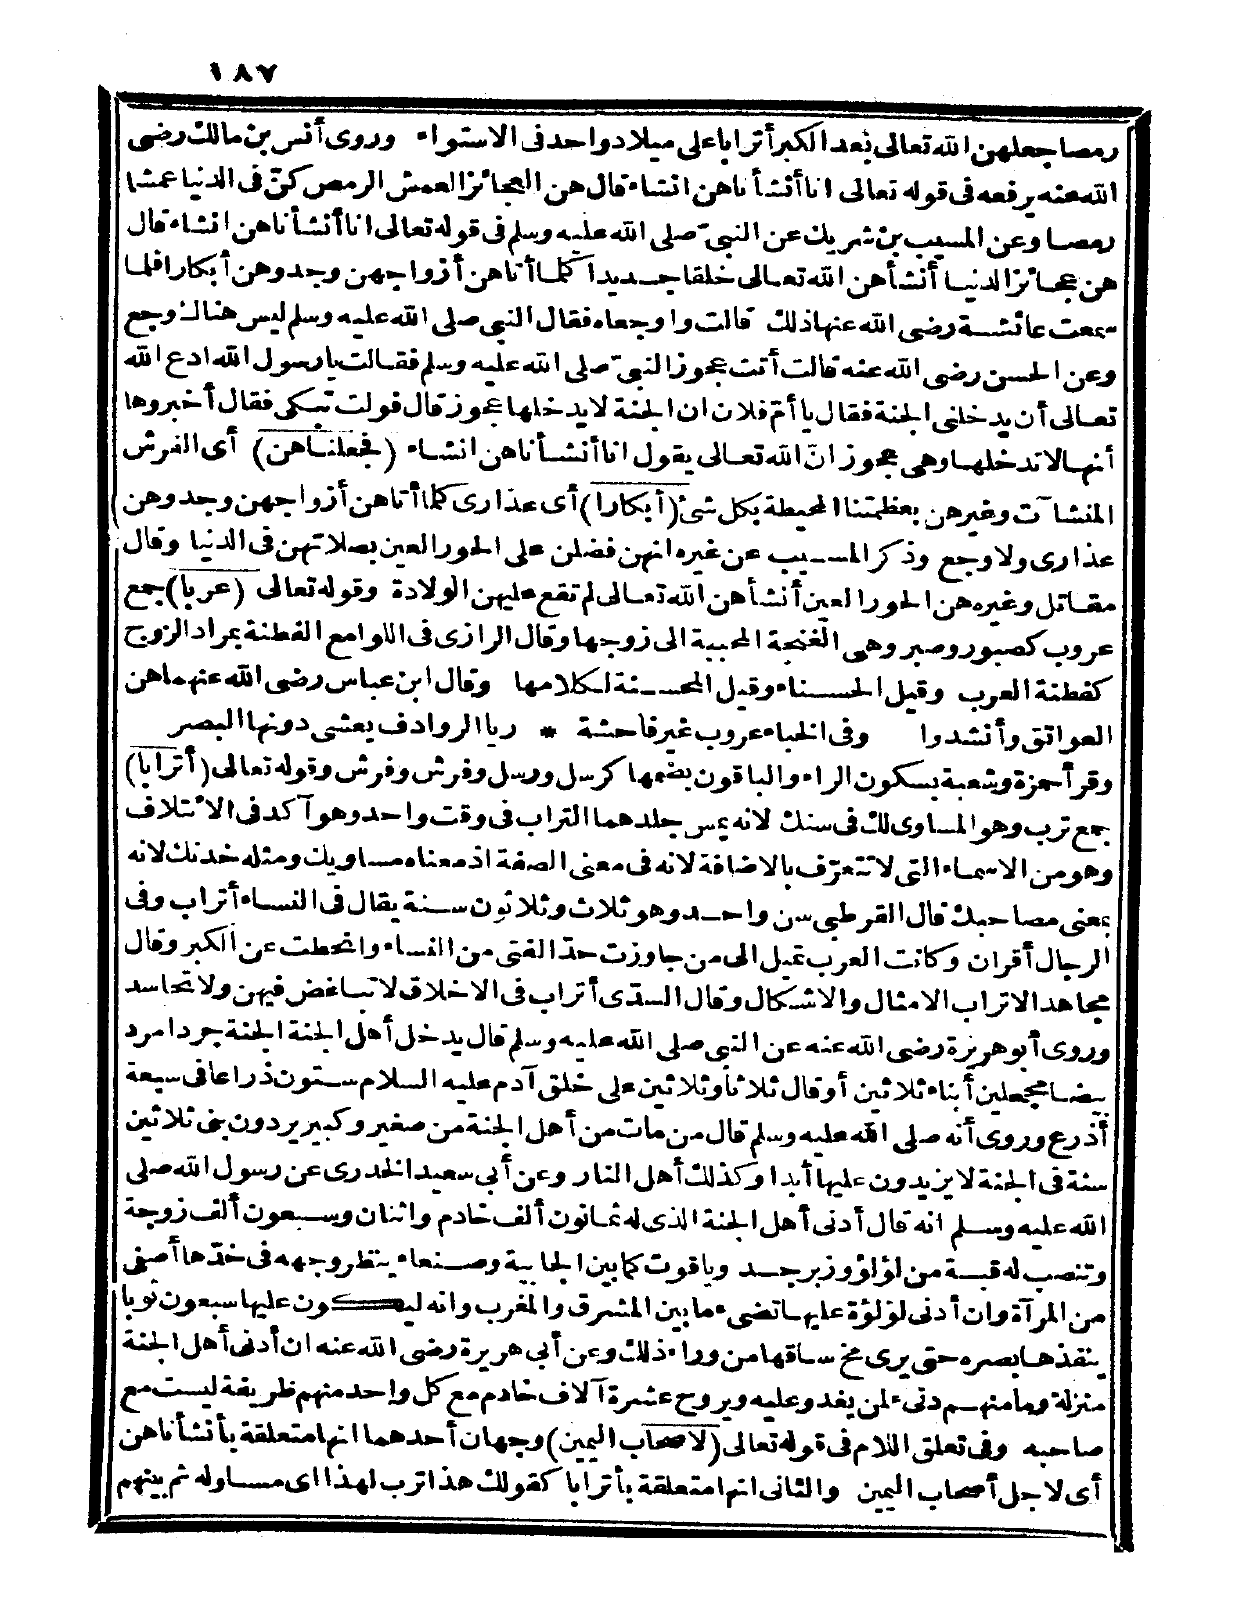 ١٨٧
رمصا جعلهن الله تعالى بعد الكبر أترابا على ميلاد واحد فى الاستواء وروى أنس بن مالك رضى
الله عنه يرفعه فى قوله تعالى انا أنشأناهن انشاء قال هن العجائز العمش الرمص كنّ فى الدنيا عمشا
رمصا وعن المسيب بن شريك عن النبىّ صلى الله عليه وسلم فى قوله تعالى انا أنشأناهن انشاء قال
هن عجائز الدنيا أنشأهن الله تعالى خلقا جديدا كلما أتاهن أزواجهن وجدوهن أبكارا فلما
سمعت عائشة رضى الله عنها ذلك قالت واوجعاه فقال النبى صلى الله عليه وسلم ليس هناك وجع
وعن الحسن رضى الله عنه قالت أتت عجوز النبىّ صلى الله عليه وسلم فقالت يا رسول الله ادع الله
تعالى أن يدخلنى الجنة فقال يا أمّ فلان ان الجنة لا يدخلها عجوز قال فولت تبكى فقال أخبروها
أنها لا تدخلها وهى عجوز انّ الله تعالى يقول انا أنشأناهن انشاء (فجعلناهن) أى الفرش
المنشآت وغيرهن بعظمتنا المحيطة بكل شئ (أبكارا) أى عذارى كلما أتاهن أزواجهن وجدوهن
عذارى ولا وجع وذكر المسيب عن غيره انهن فضلن على الحور العين بصلاتهن فى الدنيا وقال
مقاتل وغيره هن الحور العين أنشأهن الله تعالى لم تقع عليهن الولادة وقوله تعالى (عربا) جمع
عروب كصبور وصبر وهى الغنجة المحببة الى زوجها وقال الرازى فى اللوامع الفطنة بمراد الزوج
كفطنة العرب وقيل الحسناء وقيل المحسنة لكلامها وقال ابن عباس رضى الله عنهما هن
العواتق وأنشدوا وفى الخباء عروب غير فاحشة * ريا الروادف يعشى دونها البصر
وقرأ حمزة وشعبة بسكون الراء والباقون بضمها كرسل ورسل وفرش وفرش وقوله تعالى (أترابا)
جمع ترب وهو المساوى لك فى سنك لانه يمس جلدهما التراب فى وقت واحد وهو آكد فى الائتلاف
وهو من الاسماء التى لا تتعرّف بالاضافة لانه فى معنى الصفة اذ معناه مساويك ومثله خدنك لانه
بمعنى مصاحبك قال القرطبى سن واحد وهو ثلاث وثلاثون سنة يقال فى النساء أتراب وفى
الرجال أقران وكانت العرب تميل الى من جاوزت حدّ الفتى من النساء وانحطت عن الكبر وقال
مجاهد الاتراب الامثال والاشكال وقال السدّى أتراب فى الاخلاق لا تباغض فيهن ولا تحاسد
وروى أبو هريرة رضى الله عنه عن النبى صلى الله عليه وسلم قال يدخل أهل الجنة الجنة جردا مرد
بيضا مجعلين أبناء ثلاثين أو قال ثلاثا وثلاثين على خلق آدم عليه السلام ستون ذراعا فى سبعة
أذرع وروى أنه صلى الله عليه وسلم قال من مات من أهل الجنة من صغير وكبير يردون بنى ثلاثين
سنة فى الجنة لا يزيدون عليها أبدا وكذلك أهل النار وعن أبى سعيد الخدرى عن رسول الله صلى
الله عليه وسلم انه قال أدنى أهل الجنة الذى له ثمانون ألف خادم واثنان وسبعون ألف زوجة
وتنصب له قبة من لؤلؤ وزبرجد وياقوت كما بين الجابية وصنعاء ينظر وجهه فى خدّها أصفى
من المرآة وان أدنى لؤلؤة عليها تضىء ما بين المشرق والمغرب وانه ليكون عليها سبعون ثوبا
ينفذها بصره حتى يرى مخ ساقها من وراء ذلك وعن أبى هريرة رضى الله عنه ان أدنى أهل الجنة
منزلة وما منهم دنىء لمن يغدو عليه ويروح عشرة آلاف خادم مع كل واحد منهم ظريفة ليست مع
صاحبه وفى تعلق اللام فى قوله تعالى (لاصحاب اليمين) وجهان أحدهما انها متعلقة بأنشأناهن
أى لاجل أصحاب اليمين والثانى انها متعلقة بأترابا كقولك هذا ترب لهذا اى مساو له ثم بينهم